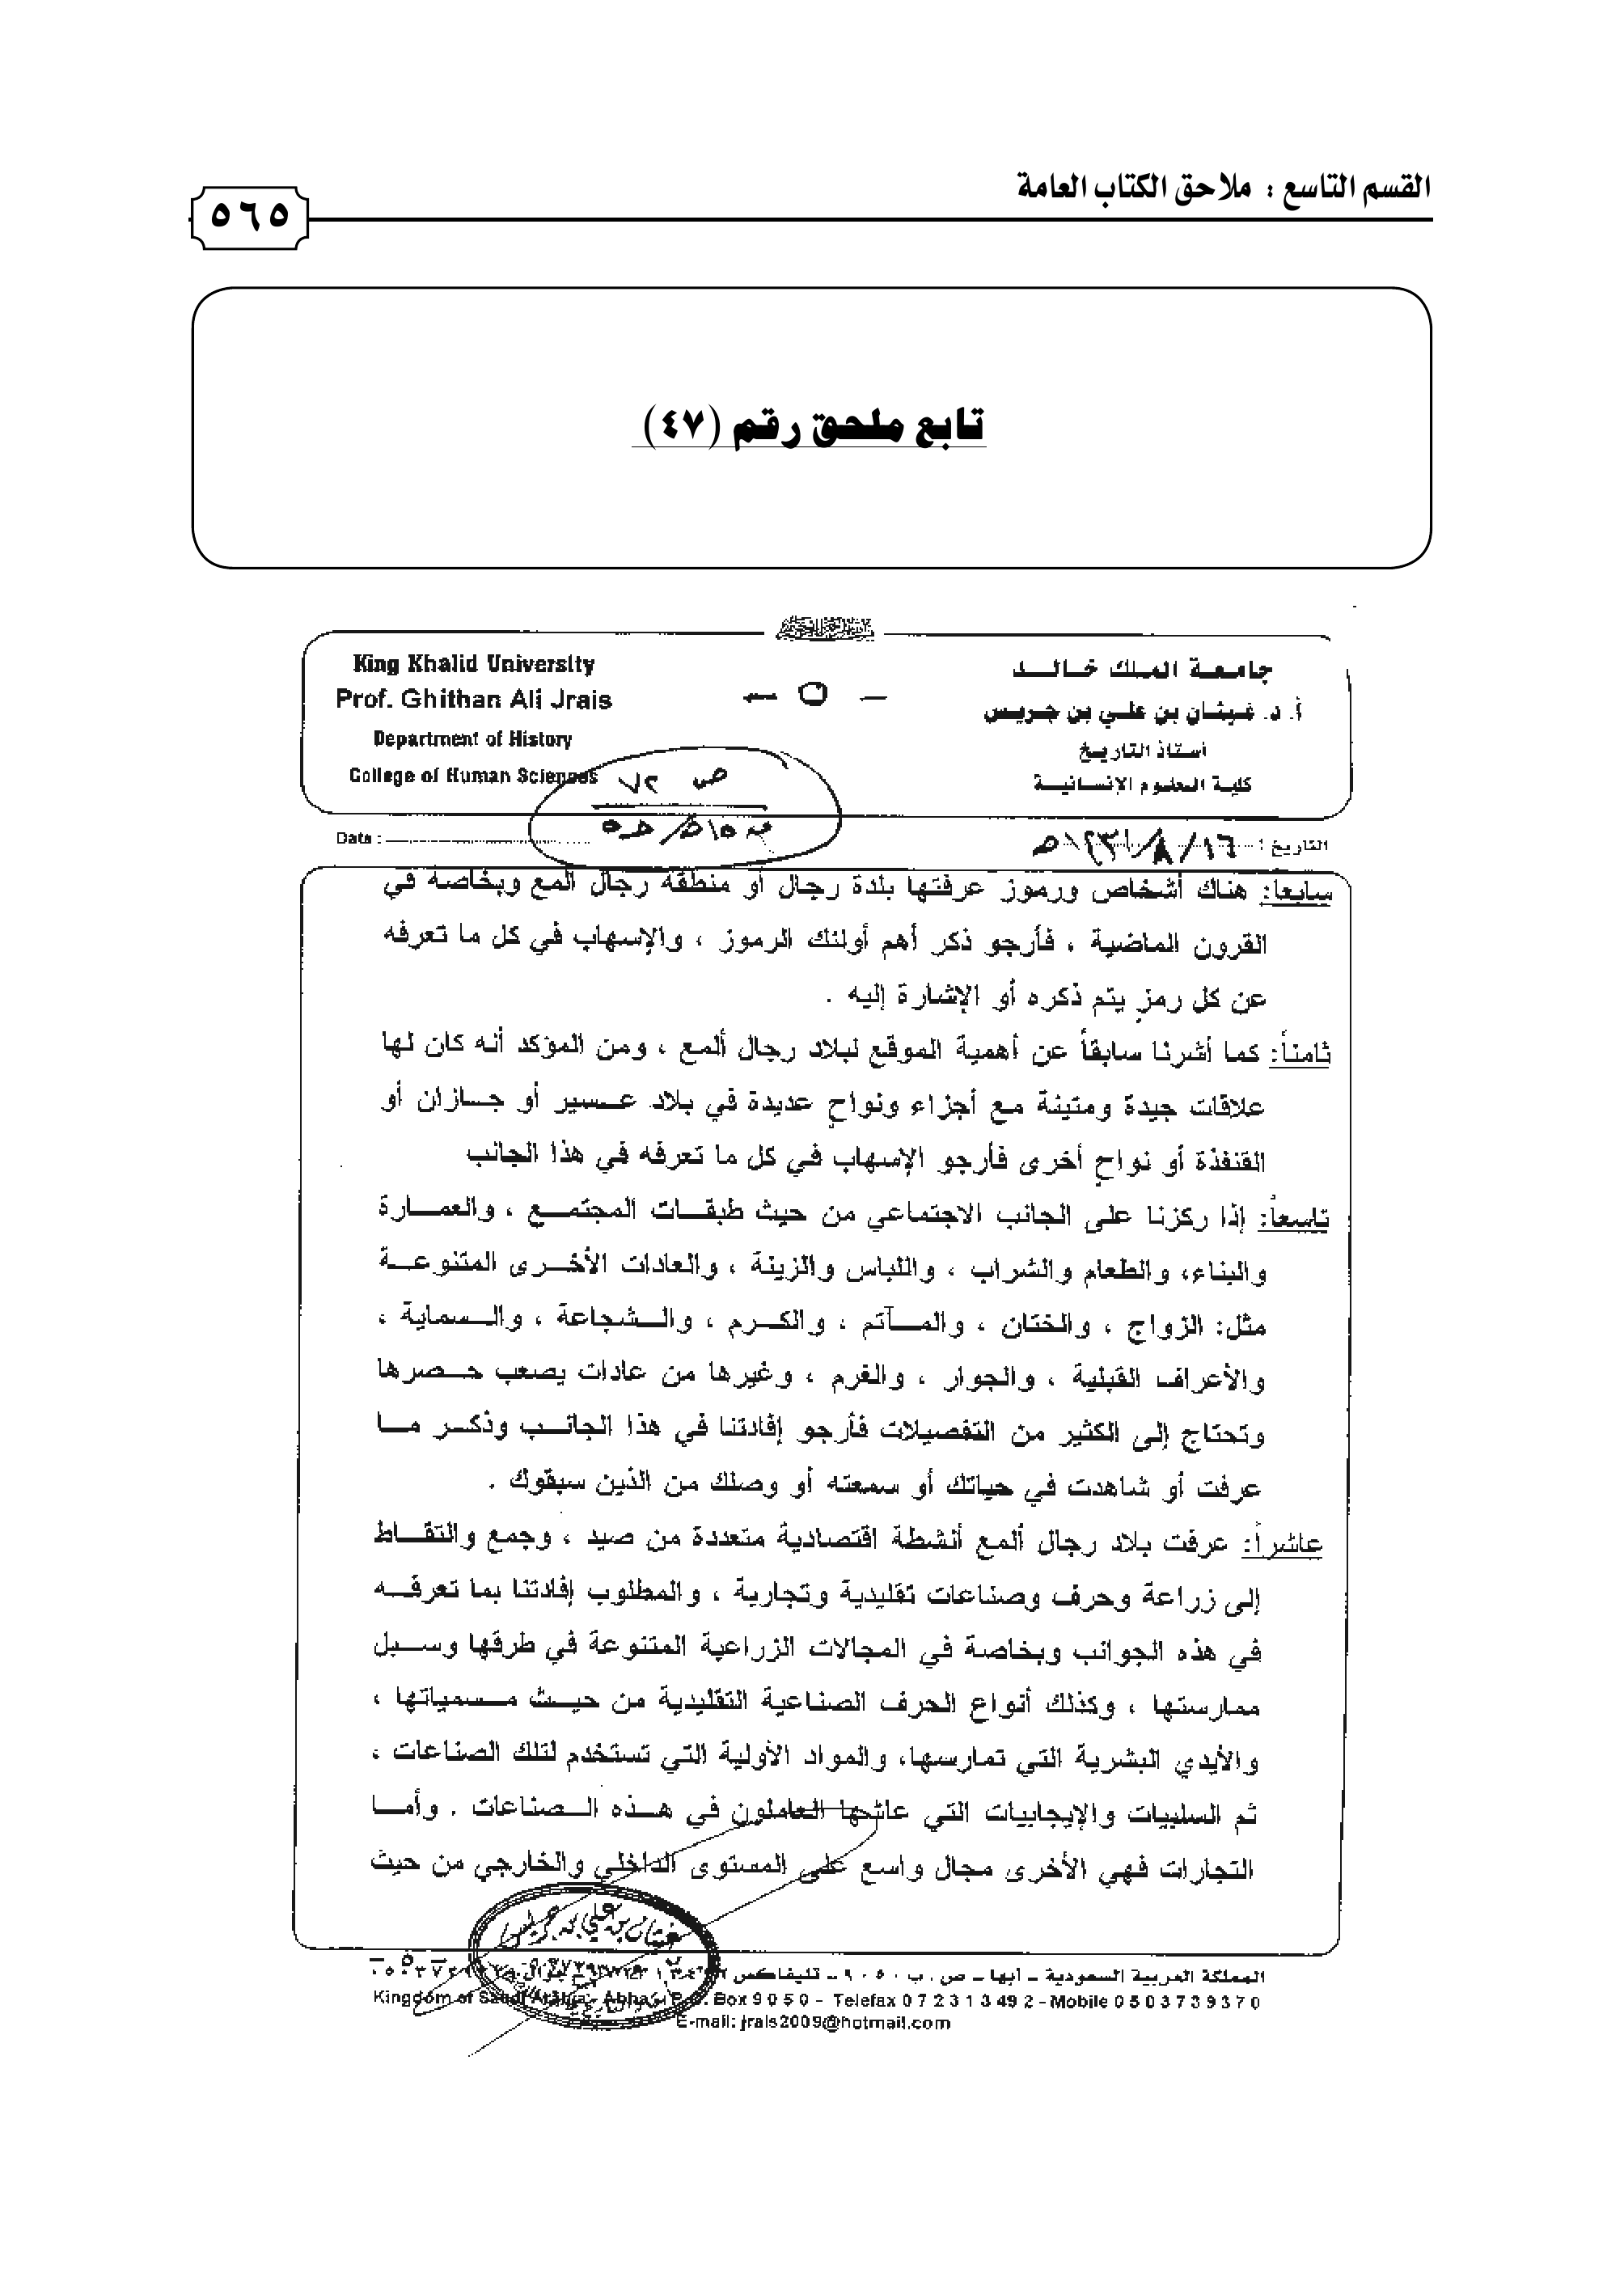 القسم التاسع : ملاحق الكتاب العامة
٥٦٥
تابع ملحق رقم (٤٧)
جامعة الملك خالد
أ. د. غيثان بن علي بن جريس
أستاذ التاريخ
كلية العلوم الإنسانية
- ٥ -
King Khalid University
Prof. Ghithan Ali Jrais
Department of History
College of Human Sciences
ص ٧٢
التاريخ :
Date :
سابعاً: هناك أشخاص ورموز عرفتها بلدة رجال أو منطقة رجال ألمع وبخاصة في
القرون الماضية ، فأرجو ذكر أهم أولئك الرموز ، والإسهاب في كل ما تعرفه
عن كل رمزٍ يتم ذكره أو الإشارة إليه .
ثامناً: كما أشرنا سابقاً عن أهمية الموقع لبلاد رجال ألمع ، ومن المؤكد أنه كان لها
علاقات جيدة ومتينة مع أجزاء ونواحٍ عديدة في بلاد عسير أو جازان أو
القنفذة أو نواحٍ أخرى فأرجو الإسهاب في كل ما تعرفه في هذا الجانب
تاسعاً: إذا ركزنا على الجانب الاجتماعي من حيث طبقات المجتمع ، والعمارة
والبناء، والطعام والشراب ، واللباس والزينة ، والعادات الأخرى المتنوعة
مثل: الزواج ، والختان ، والمآتم ، والكرم ، والشجاعة ، والسماية ،
والأعراف القبلية ، والجوار ، والغرم ، وغيرها من عادات يصعب حصرها
وتحتاج إلى الكثير من التفصيلات فأرجو إفادتنا في هذا الجانب وذكر ما
عرفت أو شاهدت في حياتك أو سمعته أو وصلك من الذين سبقوك .
عاشراً: عرفت بلاد رجال ألمع أنشطة اقتصادية متعددة من صيد ، وجمع والتقاط
إلى زراعة وحرف وصناعات تقليدية وتجارية ، والمطلوب إفادتنا بما تعرفه
في هذه الجوانب وبخاصة في المجالات الزراعية المتنوعة في طرقها وسبل
ممارستها ، وكذلك أنواع الحرف الصناعية التقليدية من حيث مسمياتها ،
والأيدي البشرية التي تمارسها، والمواد الأولية التي تستخدم لتلك الصناعات ،
ثم السلبيات والإيجابيات التي عاشها العاملون في هذه الصناعات . وأما
التجارات فهي الأخرى مجال واسع على المستوى الداخلي والخارجي من حيث
- ٥ -
المملكة العربية السعودية - أبها - ص . ب ٩٠٥٠ - تليفاكس
Kingdom of Saudi Arabia - Abha - P.O. Box 9 0 5 0 - Telefax 0 7 2 3 1 3 49 2 - Mobile 0 5 0 3 7 3 9 3 7 0
E-mail: jrais2009@hotmail.com